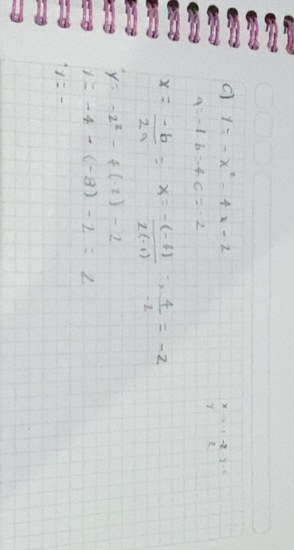 c) y = -x² - 4x - 2
a = -1 b = -4 c = -2
x = -b/2a = x = -(-4)/2(-1) = 4/-2 = -2
y = -2² - 4(-2) - 2
y = -4 - (-8) - 2 = 2
y = -